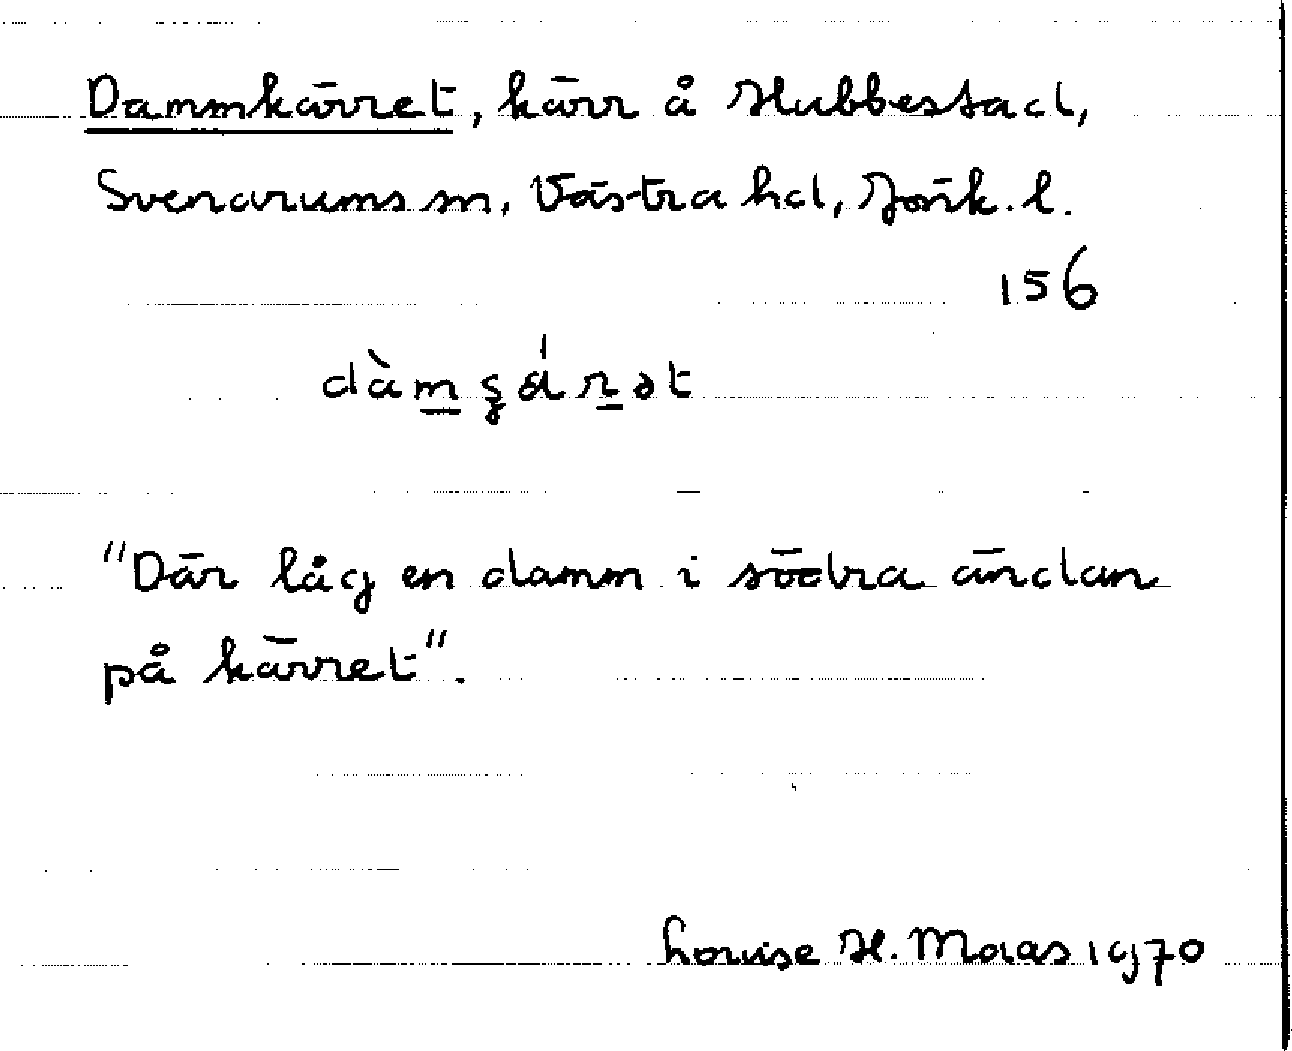 Dammkärret, kärr å Hubbestad,
Svenarums sn, Västra hd, Jönk. l.
156
dàmʂáŕət
"Där låg en damm i södra ändan
på kärret".
Louise H. Maas 1970